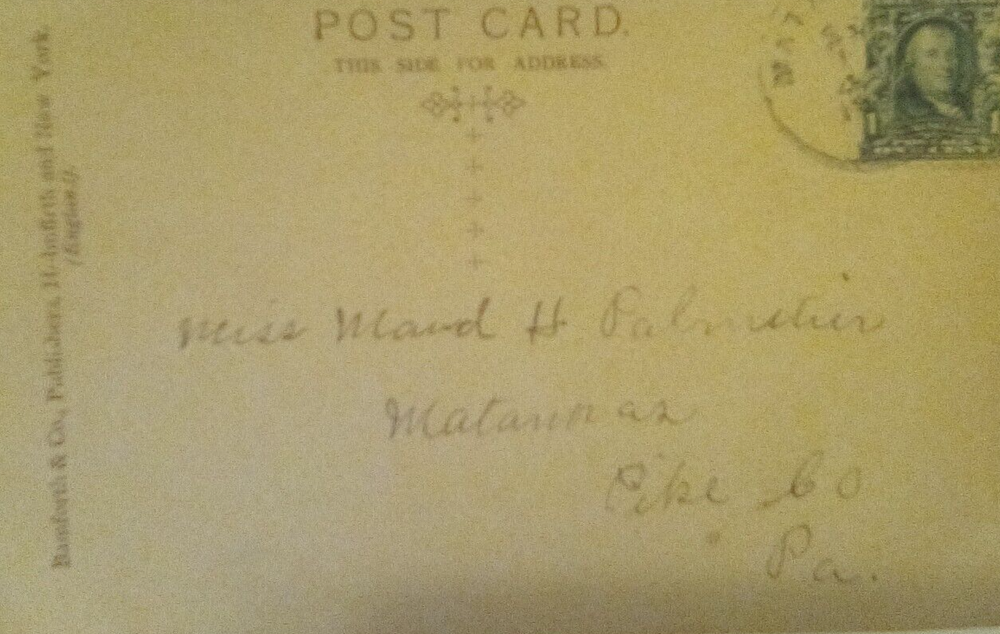 POST CARD.
THIS SIDE FOR ADDRESS.
Bamforth & Co., Publishers, Holmfirth and New York.
(England).
Miss Maud H Palmitier
Matamoras
Pike Co
Pa.